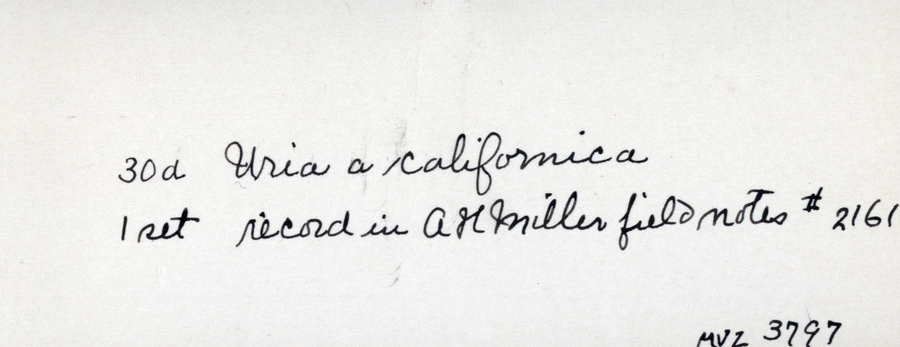 30a Uria a californica
1 set record in A H Miller field notes # 2161
MVZ 3797